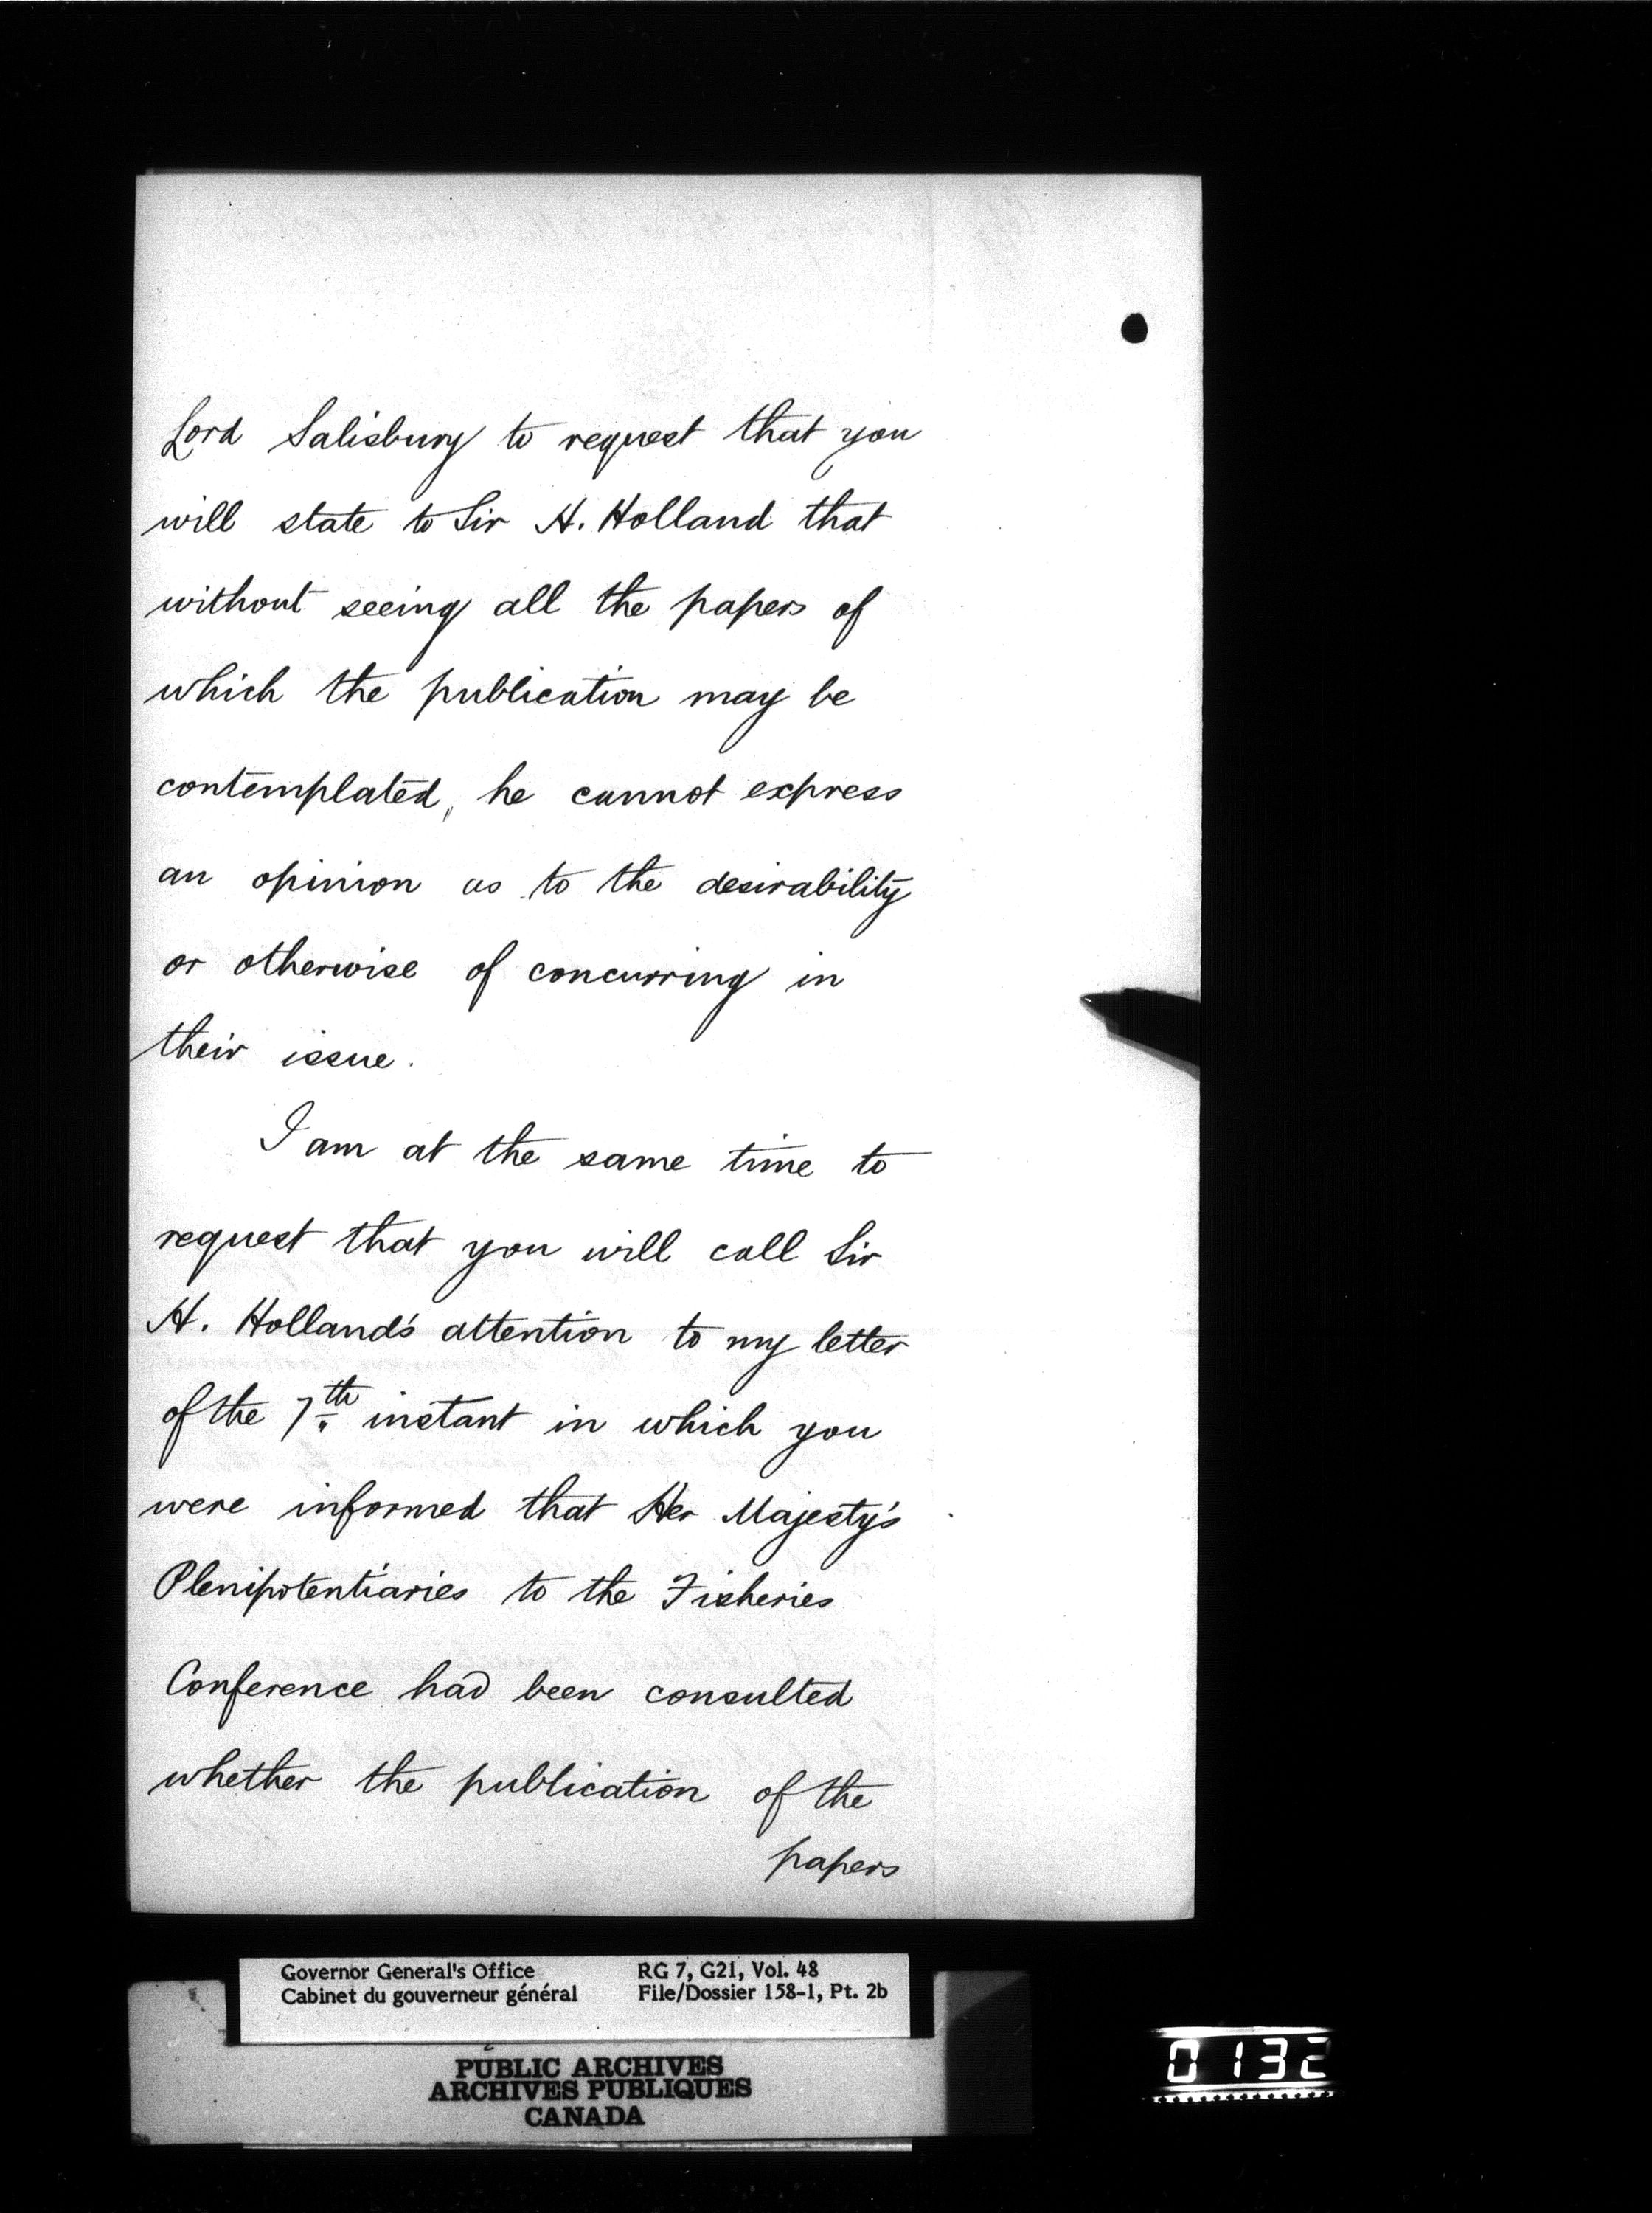 Lord Salisbury to request that you
will state to Sir H. Holland that
without seeing all the papers of
which the publication may be
contemplated, he cannot express
an opinion as to the desirability
or otherwise of concurring in
their issue.
I am at the same time to
request that you will call Sir
H. Holland's attention to my letter
of the 7th instant in which you
were informed that Her Majesty's
Plenipotentiaries to the Fisheries
Conference had been consulted
whether the publication of the
papers
Governor General's Office RG 7, G21, Vol. 48
Cabinet du gouverneur général File/Dossier 158-1, Pt. 2b
PUBLIC ARCHIVES
ARCHIVES PUBLIQUES
CANADA
0132